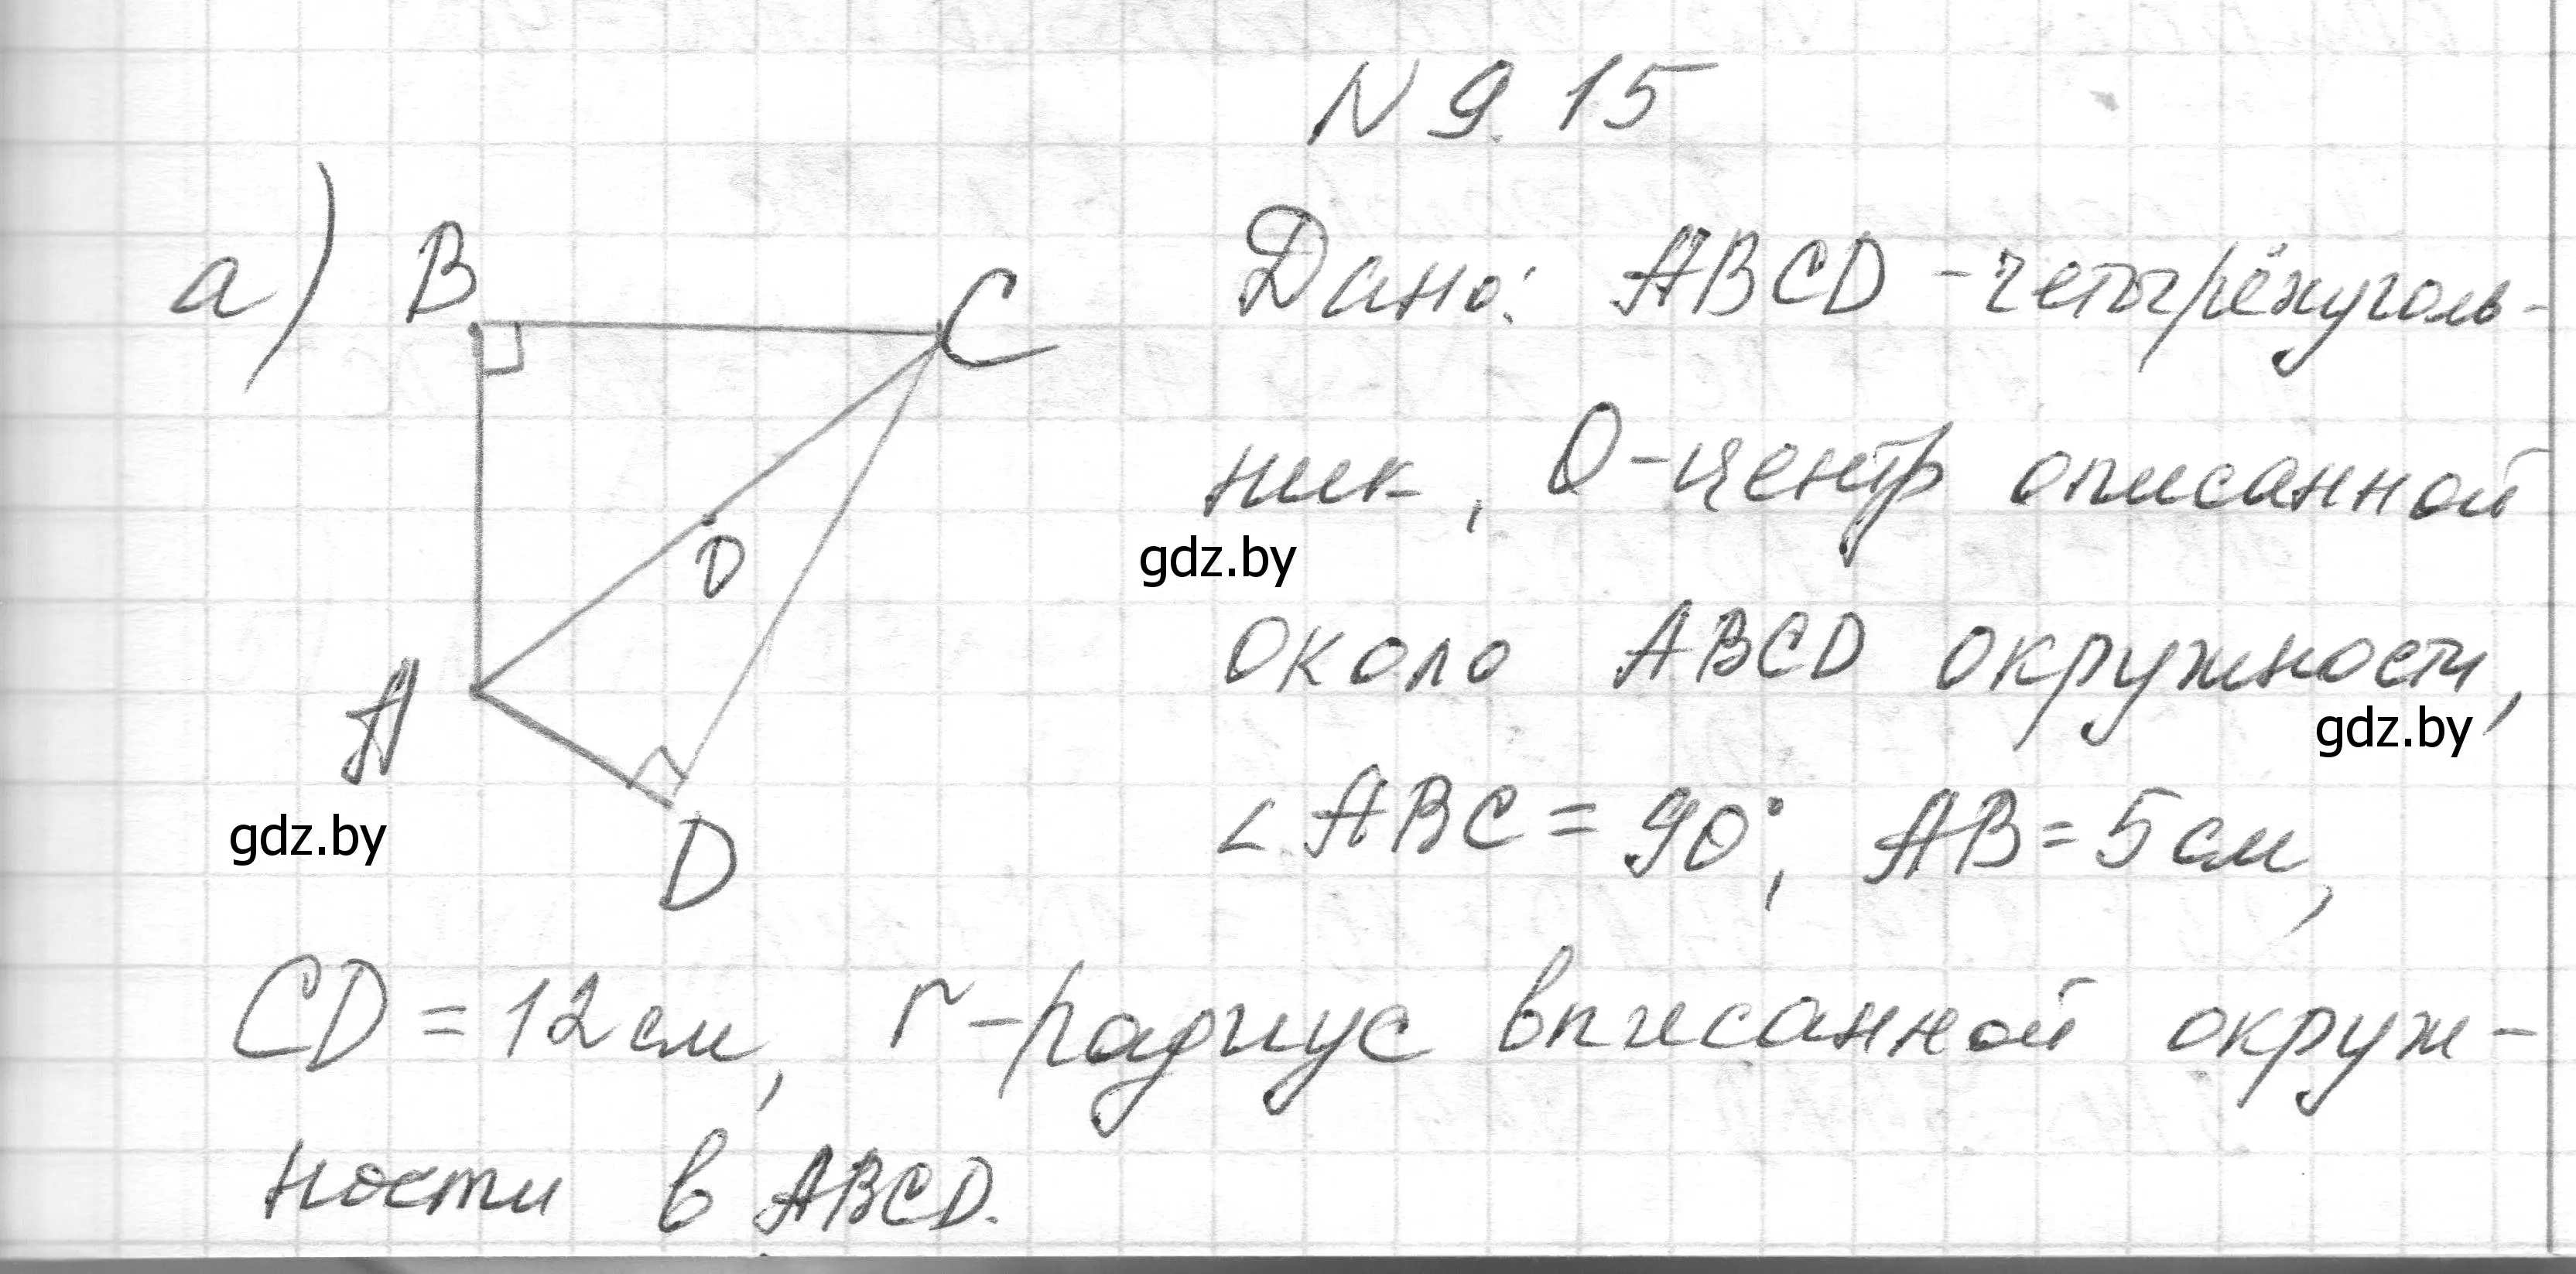 N 9.15
а) B C Дано: ABCD - четырёхуголь-
ник, O - центр описанной
O
gdz.by
около ABCD окружности,
gdz.by
A
∠ABC = 90°, AB = 5 см,
gdz.by
D
CD = 12 см, r - радиус вписанной окруж-
ности в ABCD.